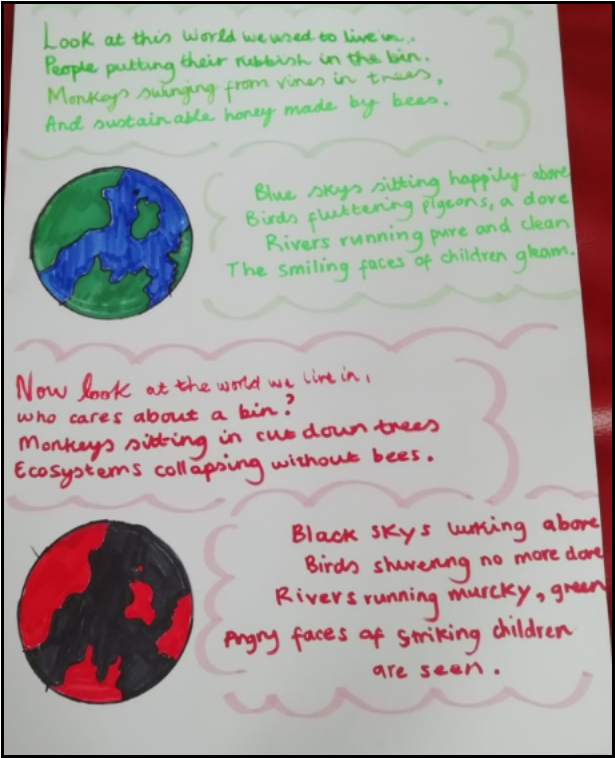 Look at this world we used to live in.
People putting their rubbish in the bin.
Monkeys swinging from vines in trees,
And sustainable honey made by bees.
Blue skys sitting happily above
Birds fluttering pigeons, a dove
Rivers running pure and clean
The smiling faces of children gleam.
Now look at the world we live in,
who cares about a bin?
Monkeys sitting in cut down trees
Ecosystems collapsing without bees.
Black skys lurking above
Birds shivering no more dove
Rivers running murcky, green
Angry faces of striking children
are seen.